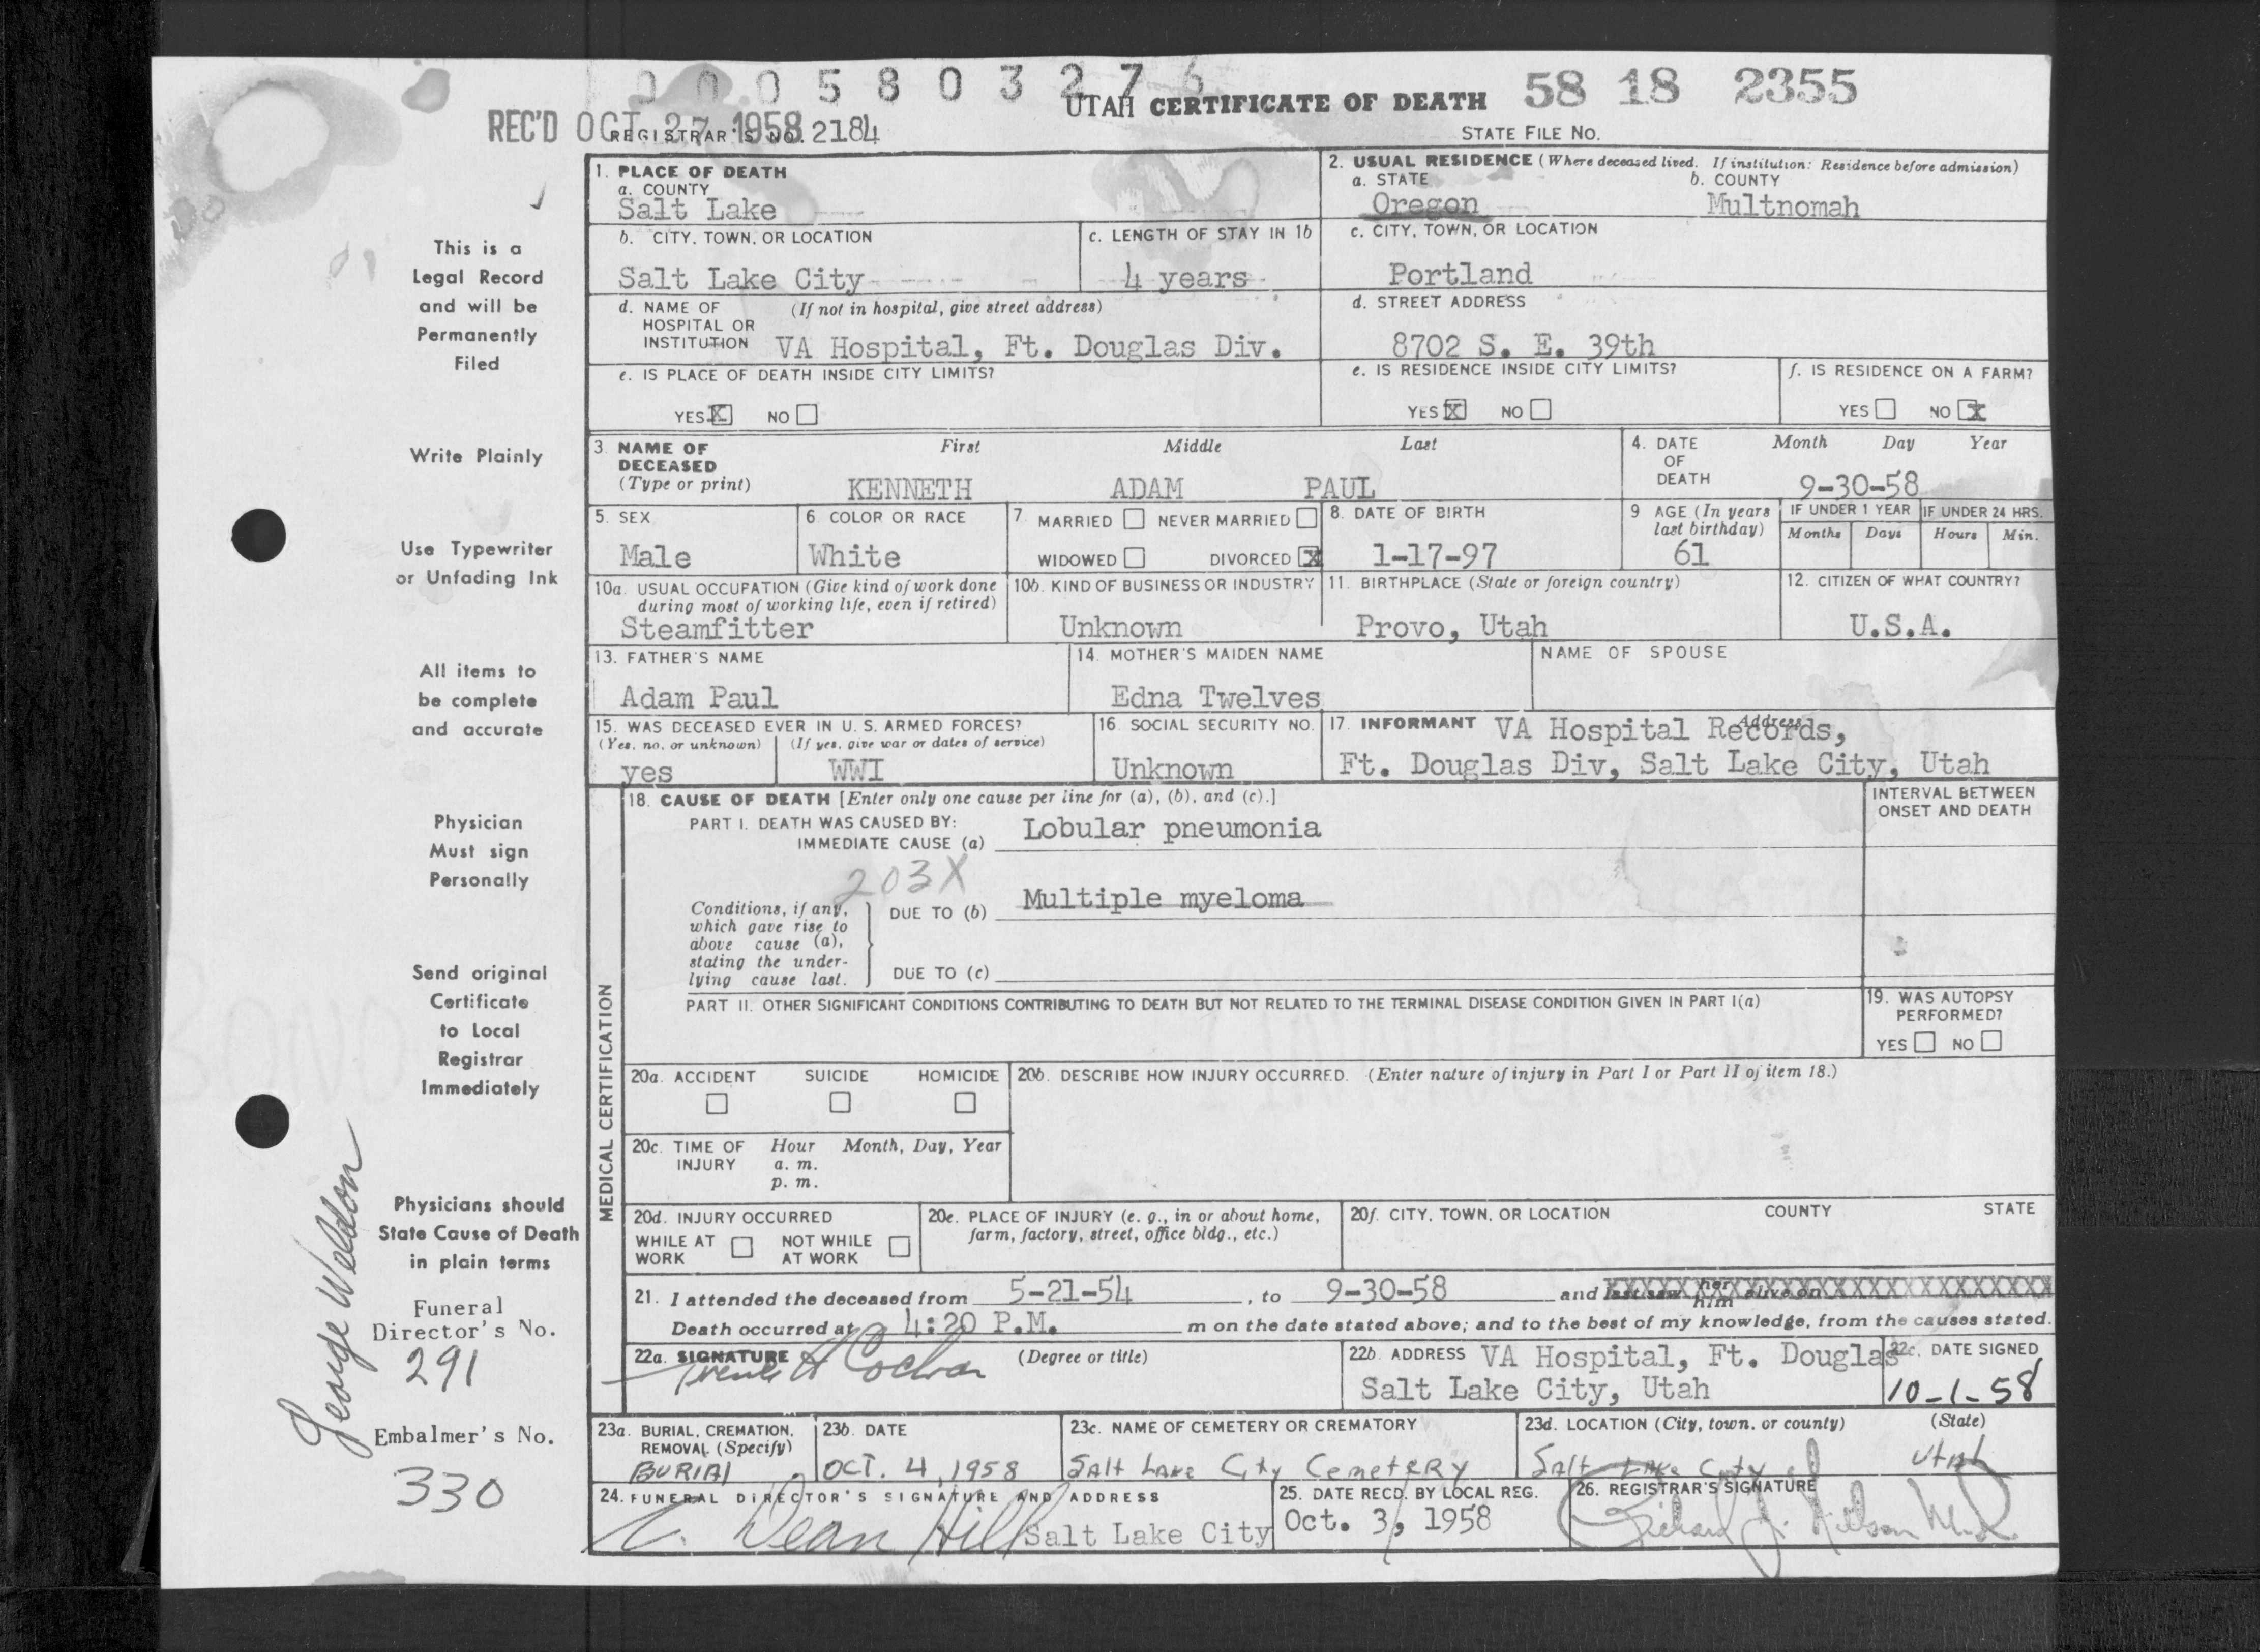 0 0 0 5 8 0 3 2 7 6
UTAH CERTIFICATE OF DEATH 58 18 2355
REC'D OCT 27 1958
REGISTRAR'S NO. 2184
STATE FILE NO.
This is a
Legal Record
and will be
Permanently
Filed
Write Plainly
Use Typewriter
or Unfading Ink
All items to
be complete
and accurate
Physician
Must sign
Personally
Send original
Certificate
to Local
Registrar
Immediately
Physicians should
State Cause of Death
in plain terms
Funeral
Director's No.
291
Embalmer's No.
330
George Weldon
1. PLACE OF DEATH
a. COUNTY
Salt Lake
2. USUAL RESIDENCE (Where deceased lived. If institution: Residence before admission)
a. STATE b. COUNTY
Oregon Multnomah
b. CITY, TOWN, OR LOCATION
Salt Lake City
c. LENGTH OF STAY IN 1b
4 years
c. CITY, TOWN, OR LOCATION
Portland
d. NAME OF (If not in hospital, give street address)
HOSPITAL OR
INSTITUTION VA Hospital, Ft. Douglas Div.
d. STREET ADDRESS
8702 S. E. 39th
e. IS PLACE OF DEATH INSIDE CITY LIMITS?
YES X NO
e. IS RESIDENCE INSIDE CITY LIMITS?
YES X NO
f. IS RESIDENCE ON A FARM?
YES NO X
3. NAME OF First Middle Last
DECEASED
(Type or print) KENNETH ADAM PAUL
4. DATE Month Day Year
OF
DEATH 9-30-58
5. SEX
Male
6. COLOR OR RACE
White
7. MARRIED NEVER MARRIED
WIDOWED DIVORCED X
8. DATE OF BIRTH
1-17-97
9 AGE (In years
last birthday)
61
IF UNDER 1 YEAR IF UNDER 24 HRS.
Months Days Hours Min.
10a. USUAL OCCUPATION (Give kind of work done
during most of working life, even if retired)
Steamfitter
10b. KIND OF BUSINESS OR INDUSTRY
Unknown
11. BIRTHPLACE (State or foreign country)
Provo, Utah
12. CITIZEN OF WHAT COUNTRY?
U.S.A.
13. FATHER'S NAME
Adam Paul
14. MOTHER'S MAIDEN NAME
Edna Twelves
NAME OF SPOUSE
15. WAS DECEASED EVER IN U. S. ARMED FORCES?
(Yes, no, or unknown) (If yes, give war or dates of service)
yes WWI
16. SOCIAL SECURITY NO.
Unknown
17. INFORMANT Address
VA Hospital Records,
Ft. Douglas Div, Salt Lake City, Utah
MEDICAL CERTIFICATION
18. CAUSE OF DEATH [Enter only one cause per line for (a), (b), and (c).]
PART I. DEATH WAS CAUSED BY:
IMMEDIATE CAUSE (a) Lobular pneumonia
203X
Conditions, if any,
which gave rise to
above cause (a),
stating the under-
lying cause last.
DUE TO (b) Multiple myeloma
DUE TO (c)
INTERVAL BETWEEN
ONSET AND DEATH
PART II. OTHER SIGNIFICANT CONDITIONS CONTRIBUTING TO DEATH BUT NOT RELATED TO THE TERMINAL DISEASE CONDITION GIVEN IN PART I(a)
19. WAS AUTOPSY
PERFORMED?
YES NO
20a. ACCIDENT SUICIDE HOMICIDE
20b. DESCRIBE HOW INJURY OCCURRED. (Enter nature of injury in Part I or Part II of item 18.)
20c. TIME OF Hour Month, Day, Year
INJURY a. m.
p. m.
20d. INJURY OCCURRED
WHILE AT NOT WHILE
WORK AT WORK
20e. PLACE OF INJURY (e. g., in or about home,
farm, factory, street, office bldg., etc.)
20f. CITY, TOWN, OR LOCATION COUNTY STATE
21. I attended the deceased from 5-21-54, to 9-30-58 and last saw her him alive on XXXXXXXXXX
Death occurred at 4:20 P.M. m on the date stated above; and to the best of my knowledge, from the causes stated.
22a. SIGNATURE (Degree or title)
H Cochran
22b. ADDRESS VA Hospital, Ft. Douglas
Salt Lake City, Utah
22c. DATE SIGNED
10-1-58
23a. BURIAL, CREMATION,
REMOVAL (Specify)
BURIAl
23b. DATE
OCT. 4, 1958
23c. NAME OF CEMETERY OR CREMATORY
SAlt LAke City CemetERY
23d. LOCATION (City, town, or county) (State)
SAlt LAKe City Utah
24. FUNERAL DIRECTOR'S SIGNATURE AND ADDRESS
C. Dean Hill Salt Lake City
25. DATE RECD. BY LOCAL REG.
Oct. 3, 1958
26. REGISTRAR'S SIGNATURE
Richard J. Nelson M.D.